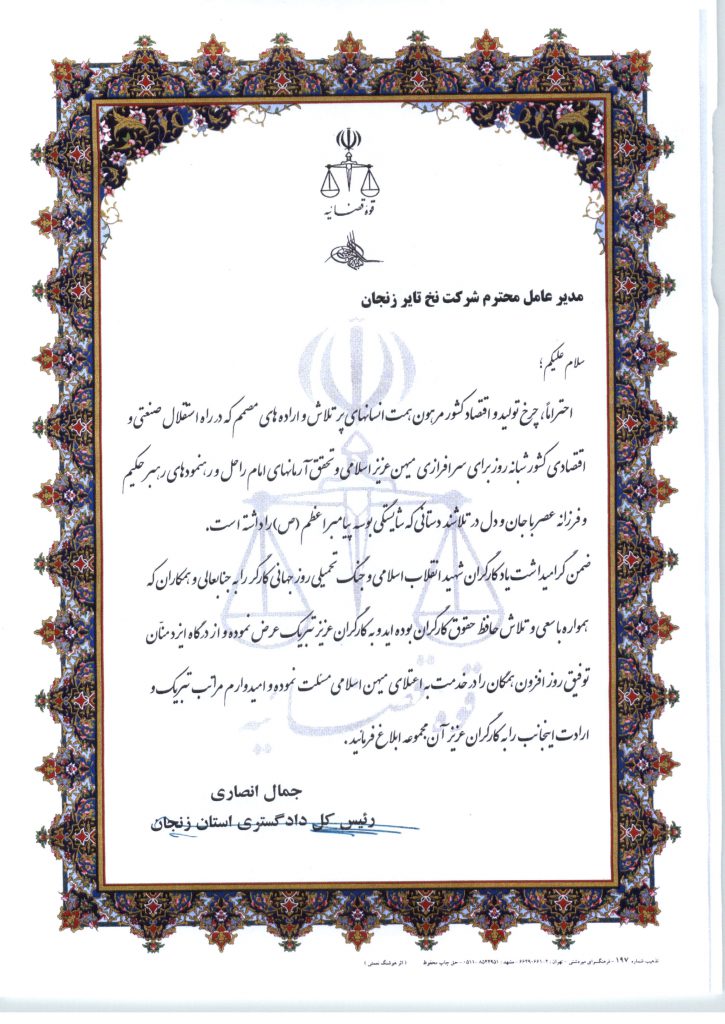 قوهٔ قضائیه
مدیر عامل محترم شرکت نخ تایر زنجان
سلام علیکم؛
احتراماً، چرخ تولید و اقتصاد کشور مرهون همت انسانهای پر تلاش و اراده های مصمم که در راه استقلال صنعتی و
اقتصادی کشور شبانه روز برای سرافرازی میهن عزیز اسلامی و تحقق آرمانهای امام راحل و رهنمودهای رهبر حکیم
و فرزانه عصر با جان و دل در تلاشند دستانی که شایستگی بوسه پیامبر اعظم (ص) را داشته است.
ضمن گرامیداشت یاد کارگران شهید انقلاب اسلامی و جنگ تحمیلی روز جهانی کارگر را به جنابعالی و همکاران که
همواره با سعی و تلاش حافظ حقوق کارگران بوده اید و به کارگران عزیز تبریک عرض نموده و از درگاه ایزد منّان
توفیق روز افزون همگان را در خدمت به اعتلای میهن اسلامی مسئلت نموده و امیدوارم مراتب تبریک و
ارادت اینجانب را به کارگران عزیز آن مجموعه ابلاغ فرمائید.
جمال انصاری
رئیس کل دادگستری استان زنجان
قوهٔ قضائیه
تذهیب شماره ۱۹۷ - فرهنگسرای میردشتی - تهران : ۲-۶۶۴۹۰۶۶۱ مشهد : ۸۵۴۴۹۵۱-۰۵۱۱ - حق چاپ محفوظ